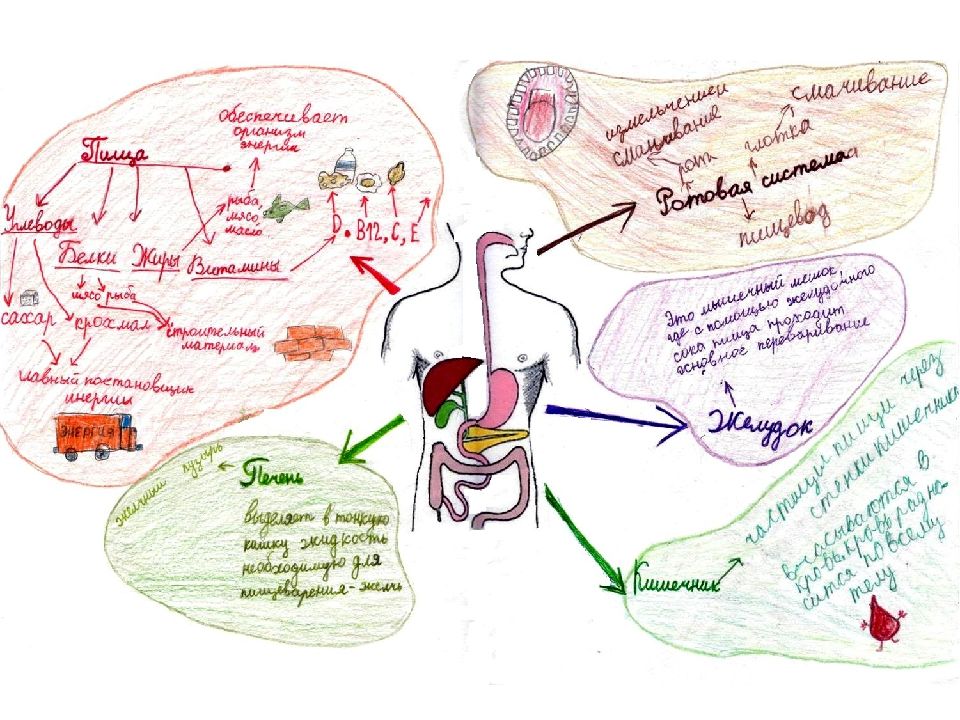 Пища
обеспечивает
организм
энергии
рыба,
мясо
масло
Углеводы
Белки
Жиры
Витамины
D, B12, C, E
мясо рыба
сахар
крохмал
строительный
материал
главный постановщик
инергии
ЭНЕРГИЯ
измельчении
смачивание
смачивание
рот
глотка
Ротовая система
пищевод
Это мышечный мешок,
где с помощью желудочного
сока пища проходит
основное переваривание
Желудок
желчный пузырь
Печень
выделяет в тонкую
кишку жидкость
необходимую для
пищеварения-желчь
Кишечник
частицы пищи через
стенки кишечника
всасываются в
кровь. Кровь разно-
сится по всему
телу